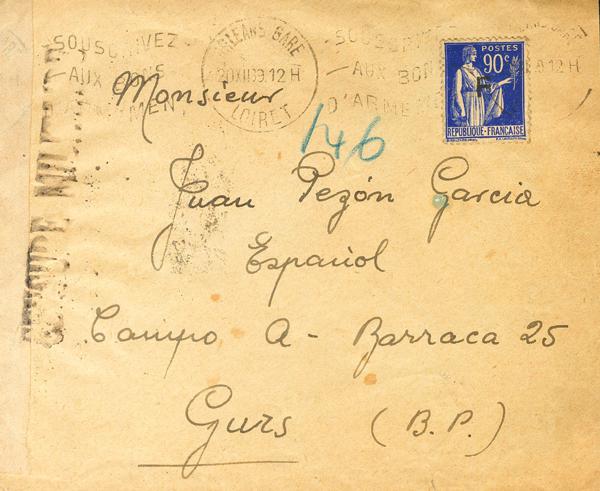 SOUSCRIVEZ
AUX BONS
D'ARMEMENT
ORLEANS GARE
12H
LOIRET
SOUSCRIVEZ
AUX BONS
D'ARMEMENT
12H
POSTES
90c
F
REPUBLIQUE-FRANÇAISE
Monsieur
146
Juan Pezón Garcia
Español
Campo A - Barraca 25
Gurs (B.P.)